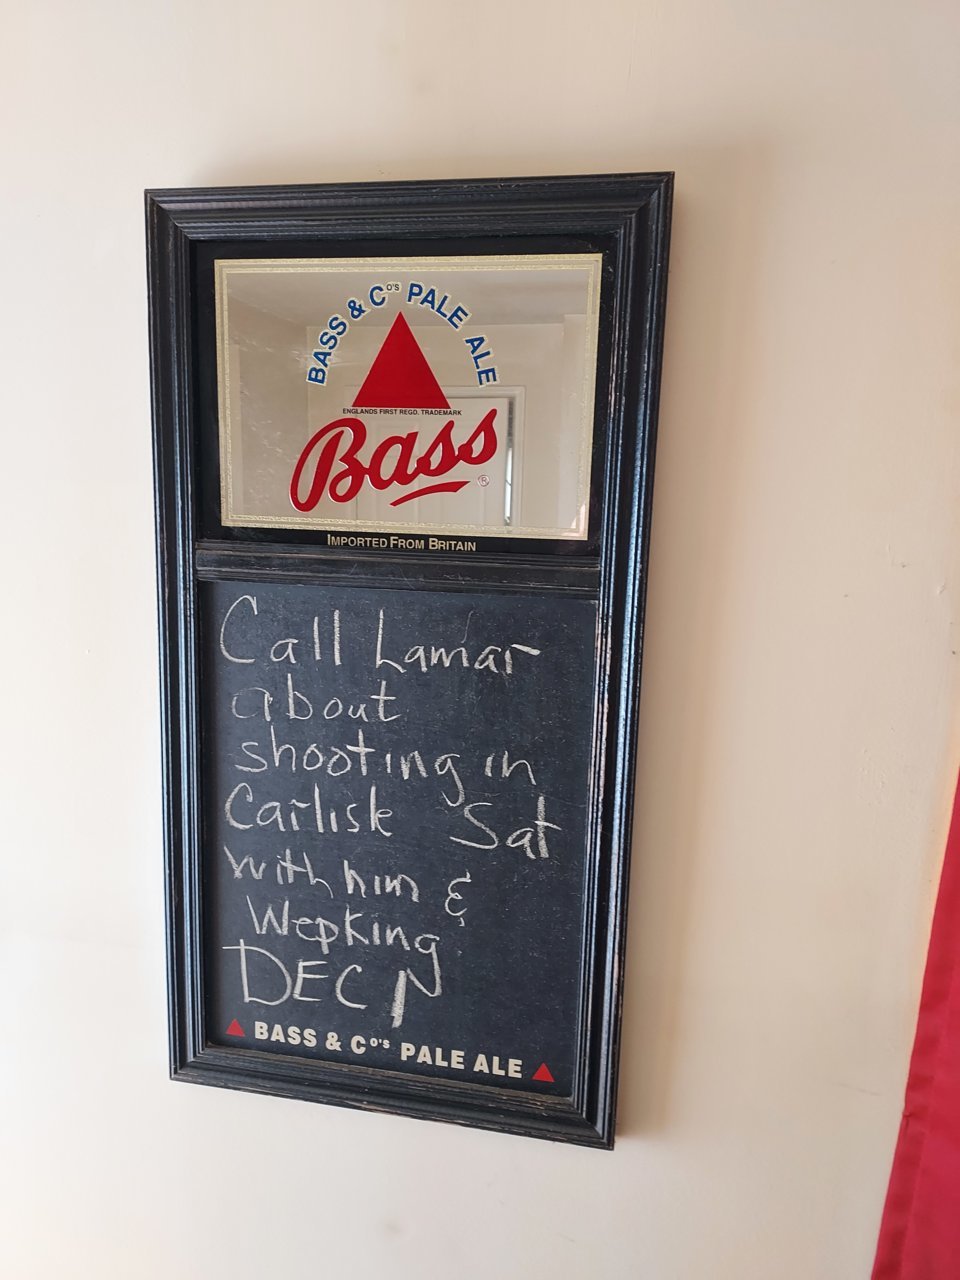 BASS & Cº'S PALE ALE
ENGLANDS FIRST REGD. TRADEMARK
Bass
®
IMPORTED FROM BRITAIN
Call Lamar
about
shooting in
Carlisle Sat
with him &
Wepking
DEC
BASS & Cº'S PALE ALE